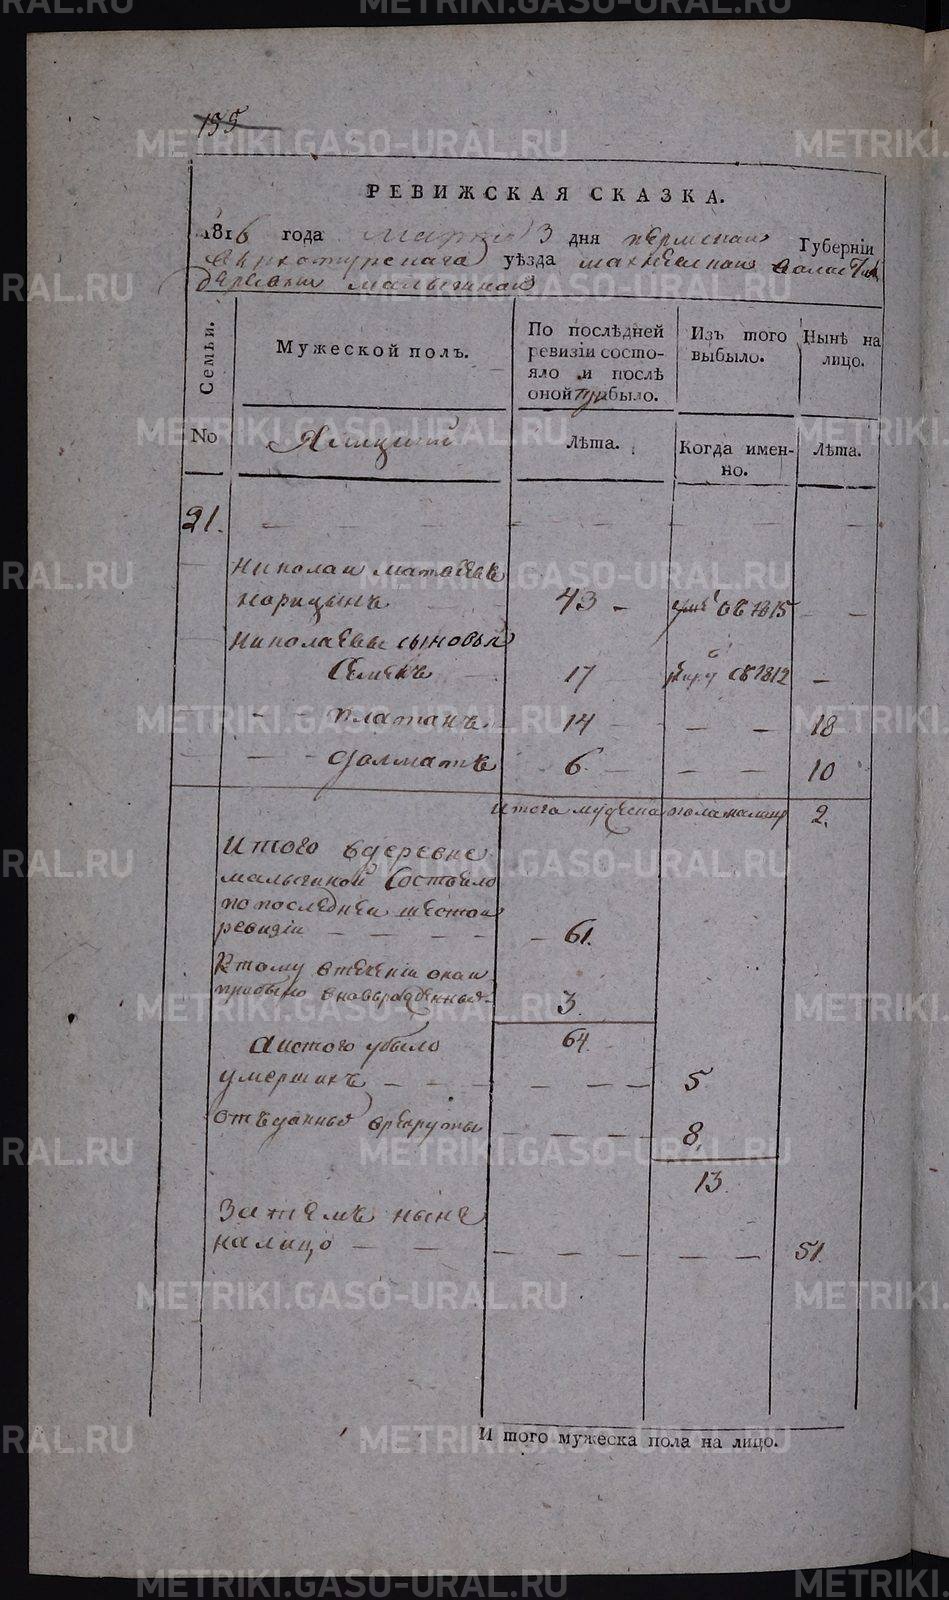 155
РЕВИЖСКАЯ СКАЗКА.
1816 года марта 3 дня пермской Губерніи
Верхотурскаго уѣзда махневской волости
деревни малыгиной
Семьи.
Мужеской полъ.
По послѣдней ревизіи состояло и послѣ оной прибыло.
Изъ того выбыло.
Нынѣ на лицо.
No
Ямщики
Лѣта.
Когда именно.
Лѣта.
21.
николаи матвеевъ
норицынъ 43 умре въ 1815
николаевы сыновья
Семенъ 17 въ 1812
платанъ 14 18
далматъ 6. 10
итого мужеска пола налицо 2.
Итого вдеревне
малыгиной Состояло
по последнеи шестои
ревизіи 61.
К тому втеченіи онаи
прибыло вновьрожденныя 3.
64
Аистого убыло
умершихъ 5
отъданныя врекруты 8.
13.
Затемъ ныне
налицо 51.
И того мужеска пола на лицо.
METRIKI.GASO-URAL.RU